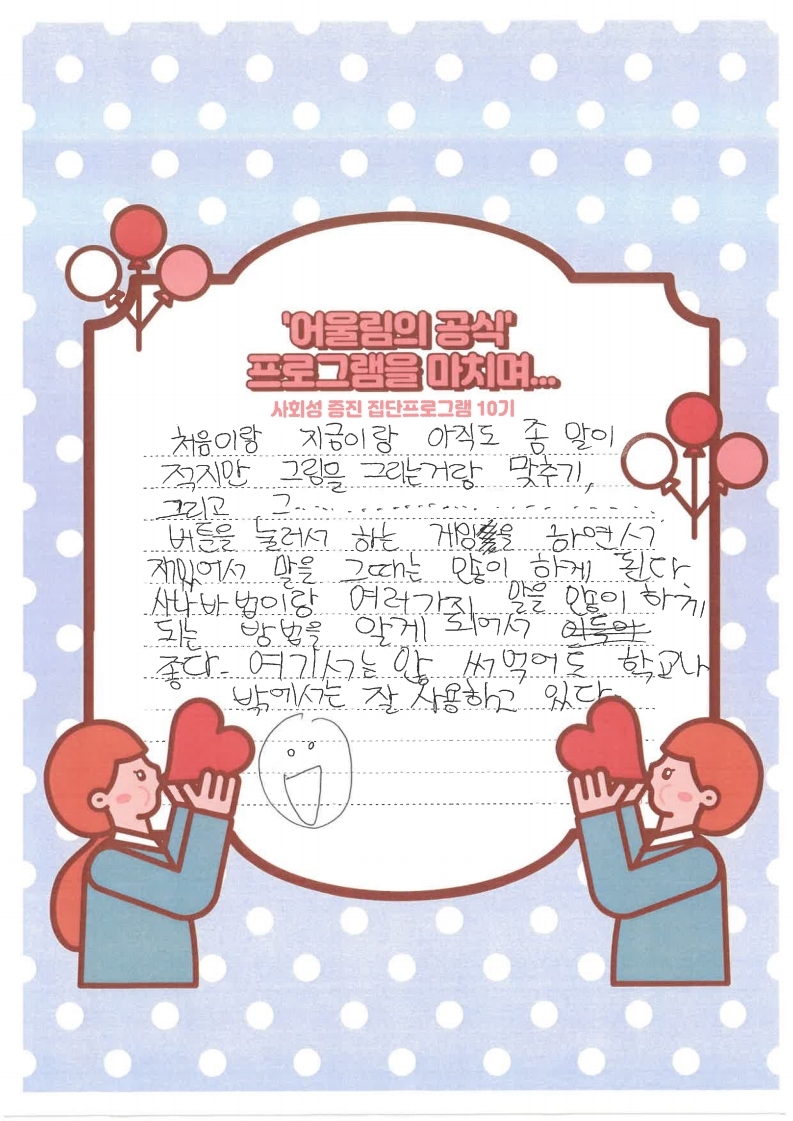 '어울림의 공식'
프로그램을 마치며...
사회성 증진 집단프로그램 10기
처음이랑 지금이랑 아직도 좀 말이
적지만 그림을 그리는거랑 맞추기,
그리고 그.............................
버튼을 눌러서 하는 게임을 하면서
재밌어서 말을 그때는 많이 하게 된다
사나바 법이랑 여러가지 말을 많이 하게
되는 방법을 알게 되어서
좋다. 여기서는 안 써먹어도 학교나
밖에서는 잘 사용하고 있다.